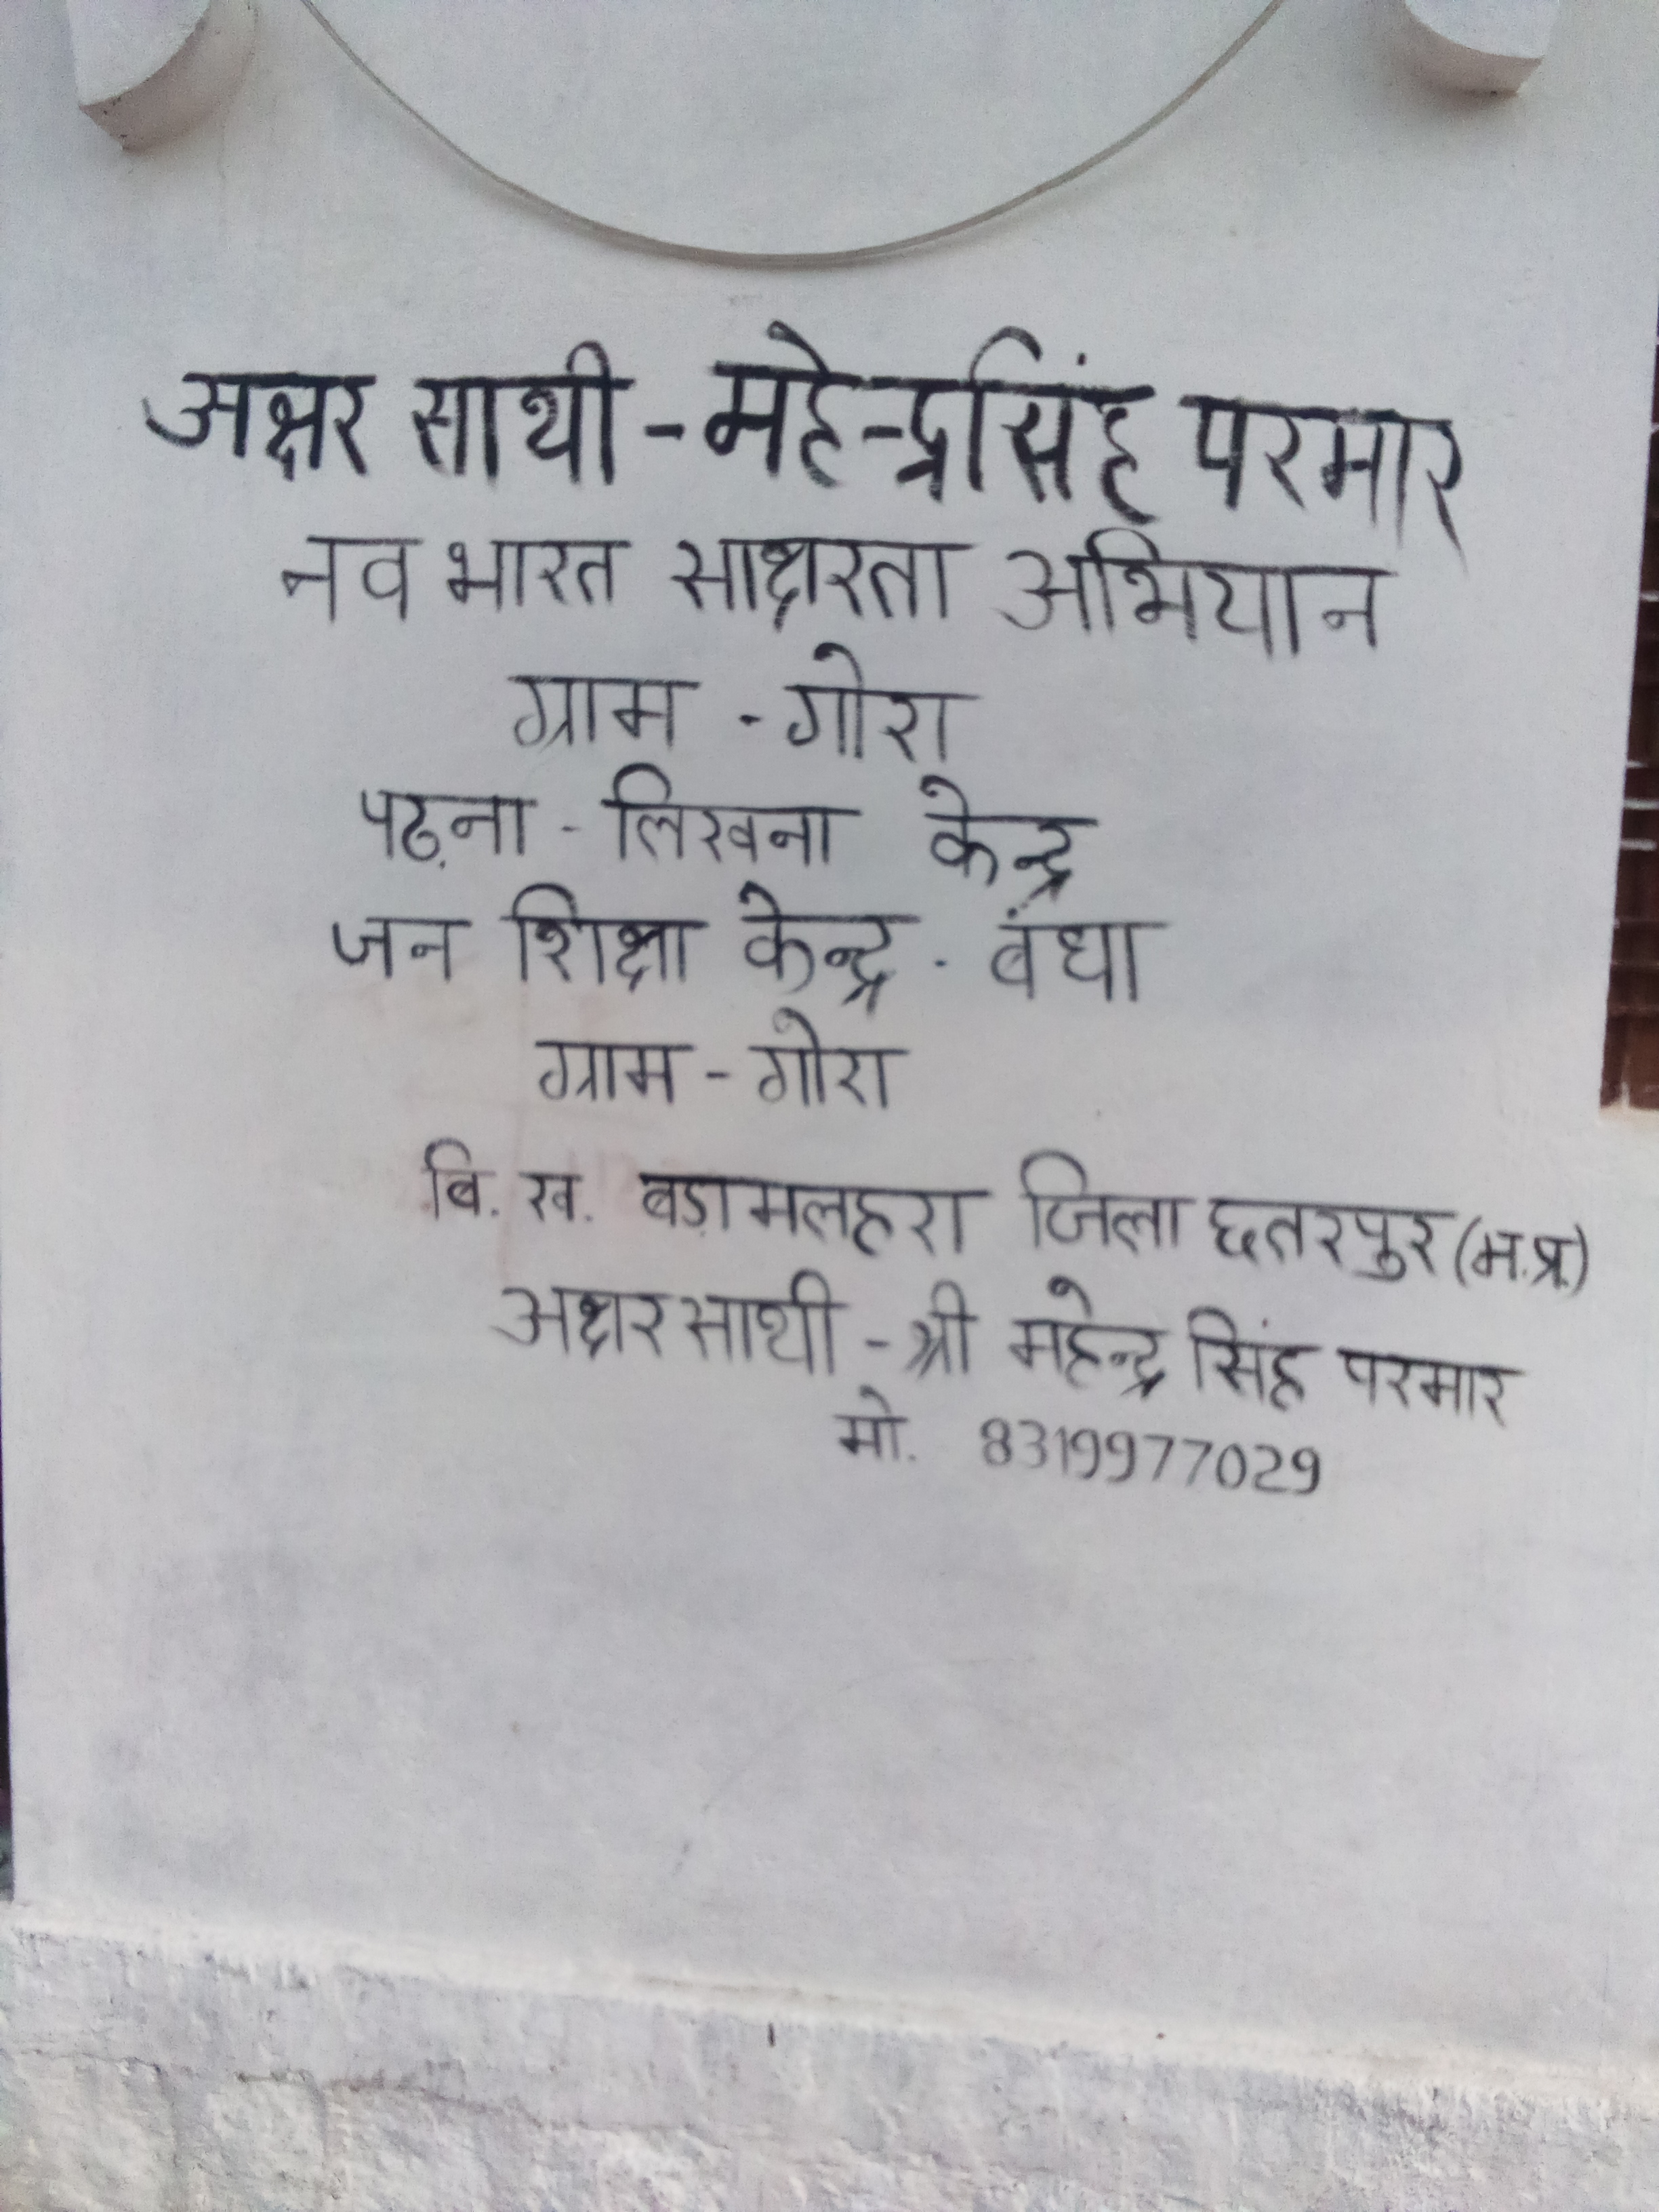 अक्षर साथी - महेन्द्रसिंह परमार
नव भारत साक्षरता अभियान
ग्राम - गोरा
पढ़ना - लिखना केन्द्र
जन शिक्षा केन्द्र - बंधा
ग्राम - गोरा
बि. ख. बड़ामलहरा जिला छतरपुर (म.प्र.)
अक्षर साथी - श्री महेन्द्र सिंह परमार
मो. 8319977029